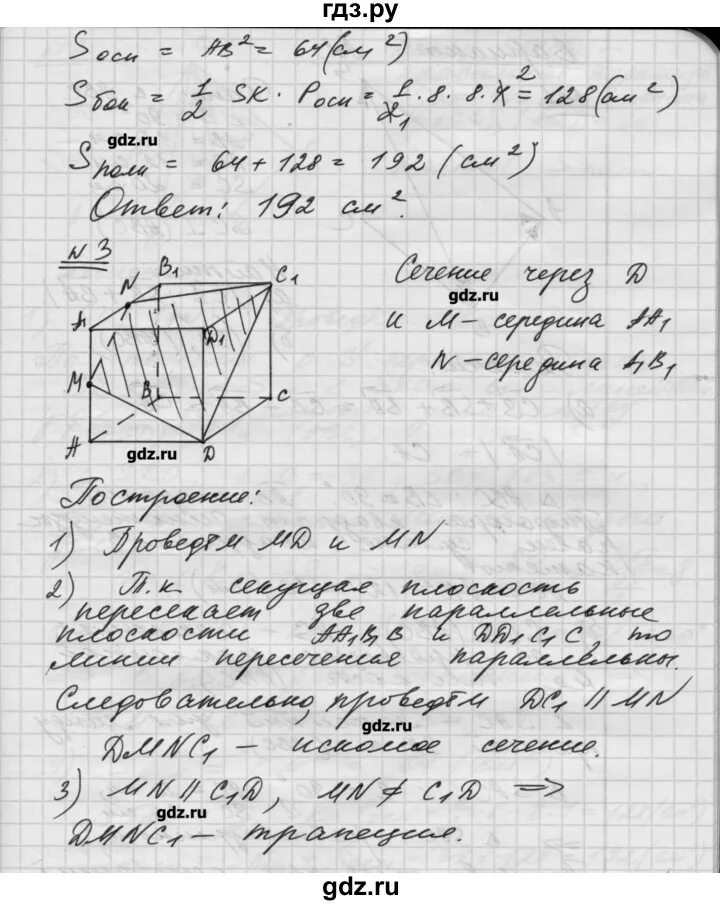 гдз.ру
Sосн = AB² = 64 (см²)
Sбок = 1/2 SK · Pосн = 1/2 · 8 · 8 · 4 = 128 (см²)
1 2
gdz.ru
Sполн = 64 + 128 = 192 (см²)
Ответ: 192 см².
N 3
B1 C1
N
A1 D1
M B C
A D
gdz.ru
Сечение через D
gdz.ru
и M – середина AA1
N – середина A1B1
Построение:
1) Проведём MD и MN
2) Т.к. секущая плоскость
пересекает две параллельные
плоскости AA1B1B и DD1C1C, то
линии пересечения параллельны.
Следовательно, проведём DC1 || MN
gdz.ru
DMNC1 – искомое сечение.
3) MN || C1D, MN ≠ C1D ⇒
gdz.ru
DMNC1 – трапеция.
gdz.ru